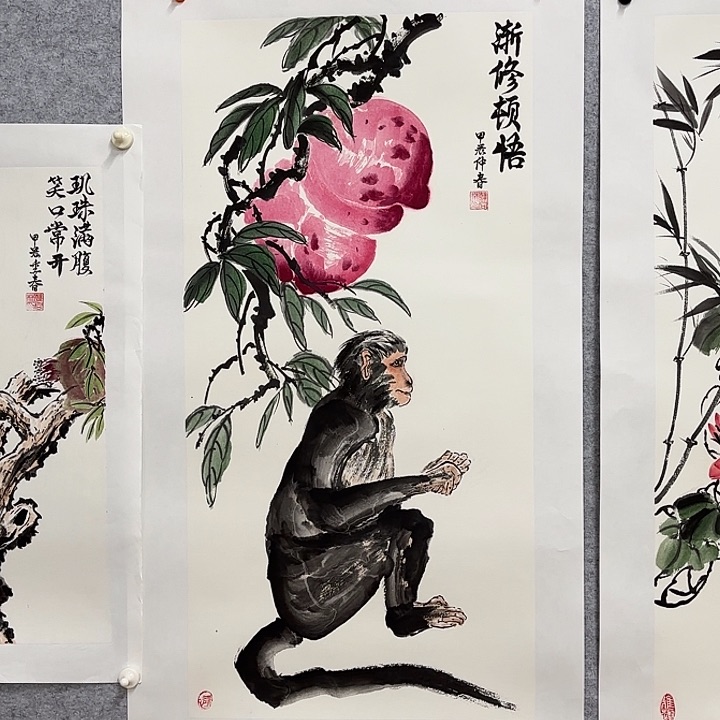 渐修顿悟
甲辰仲春
玑珠满腹
笑口常开